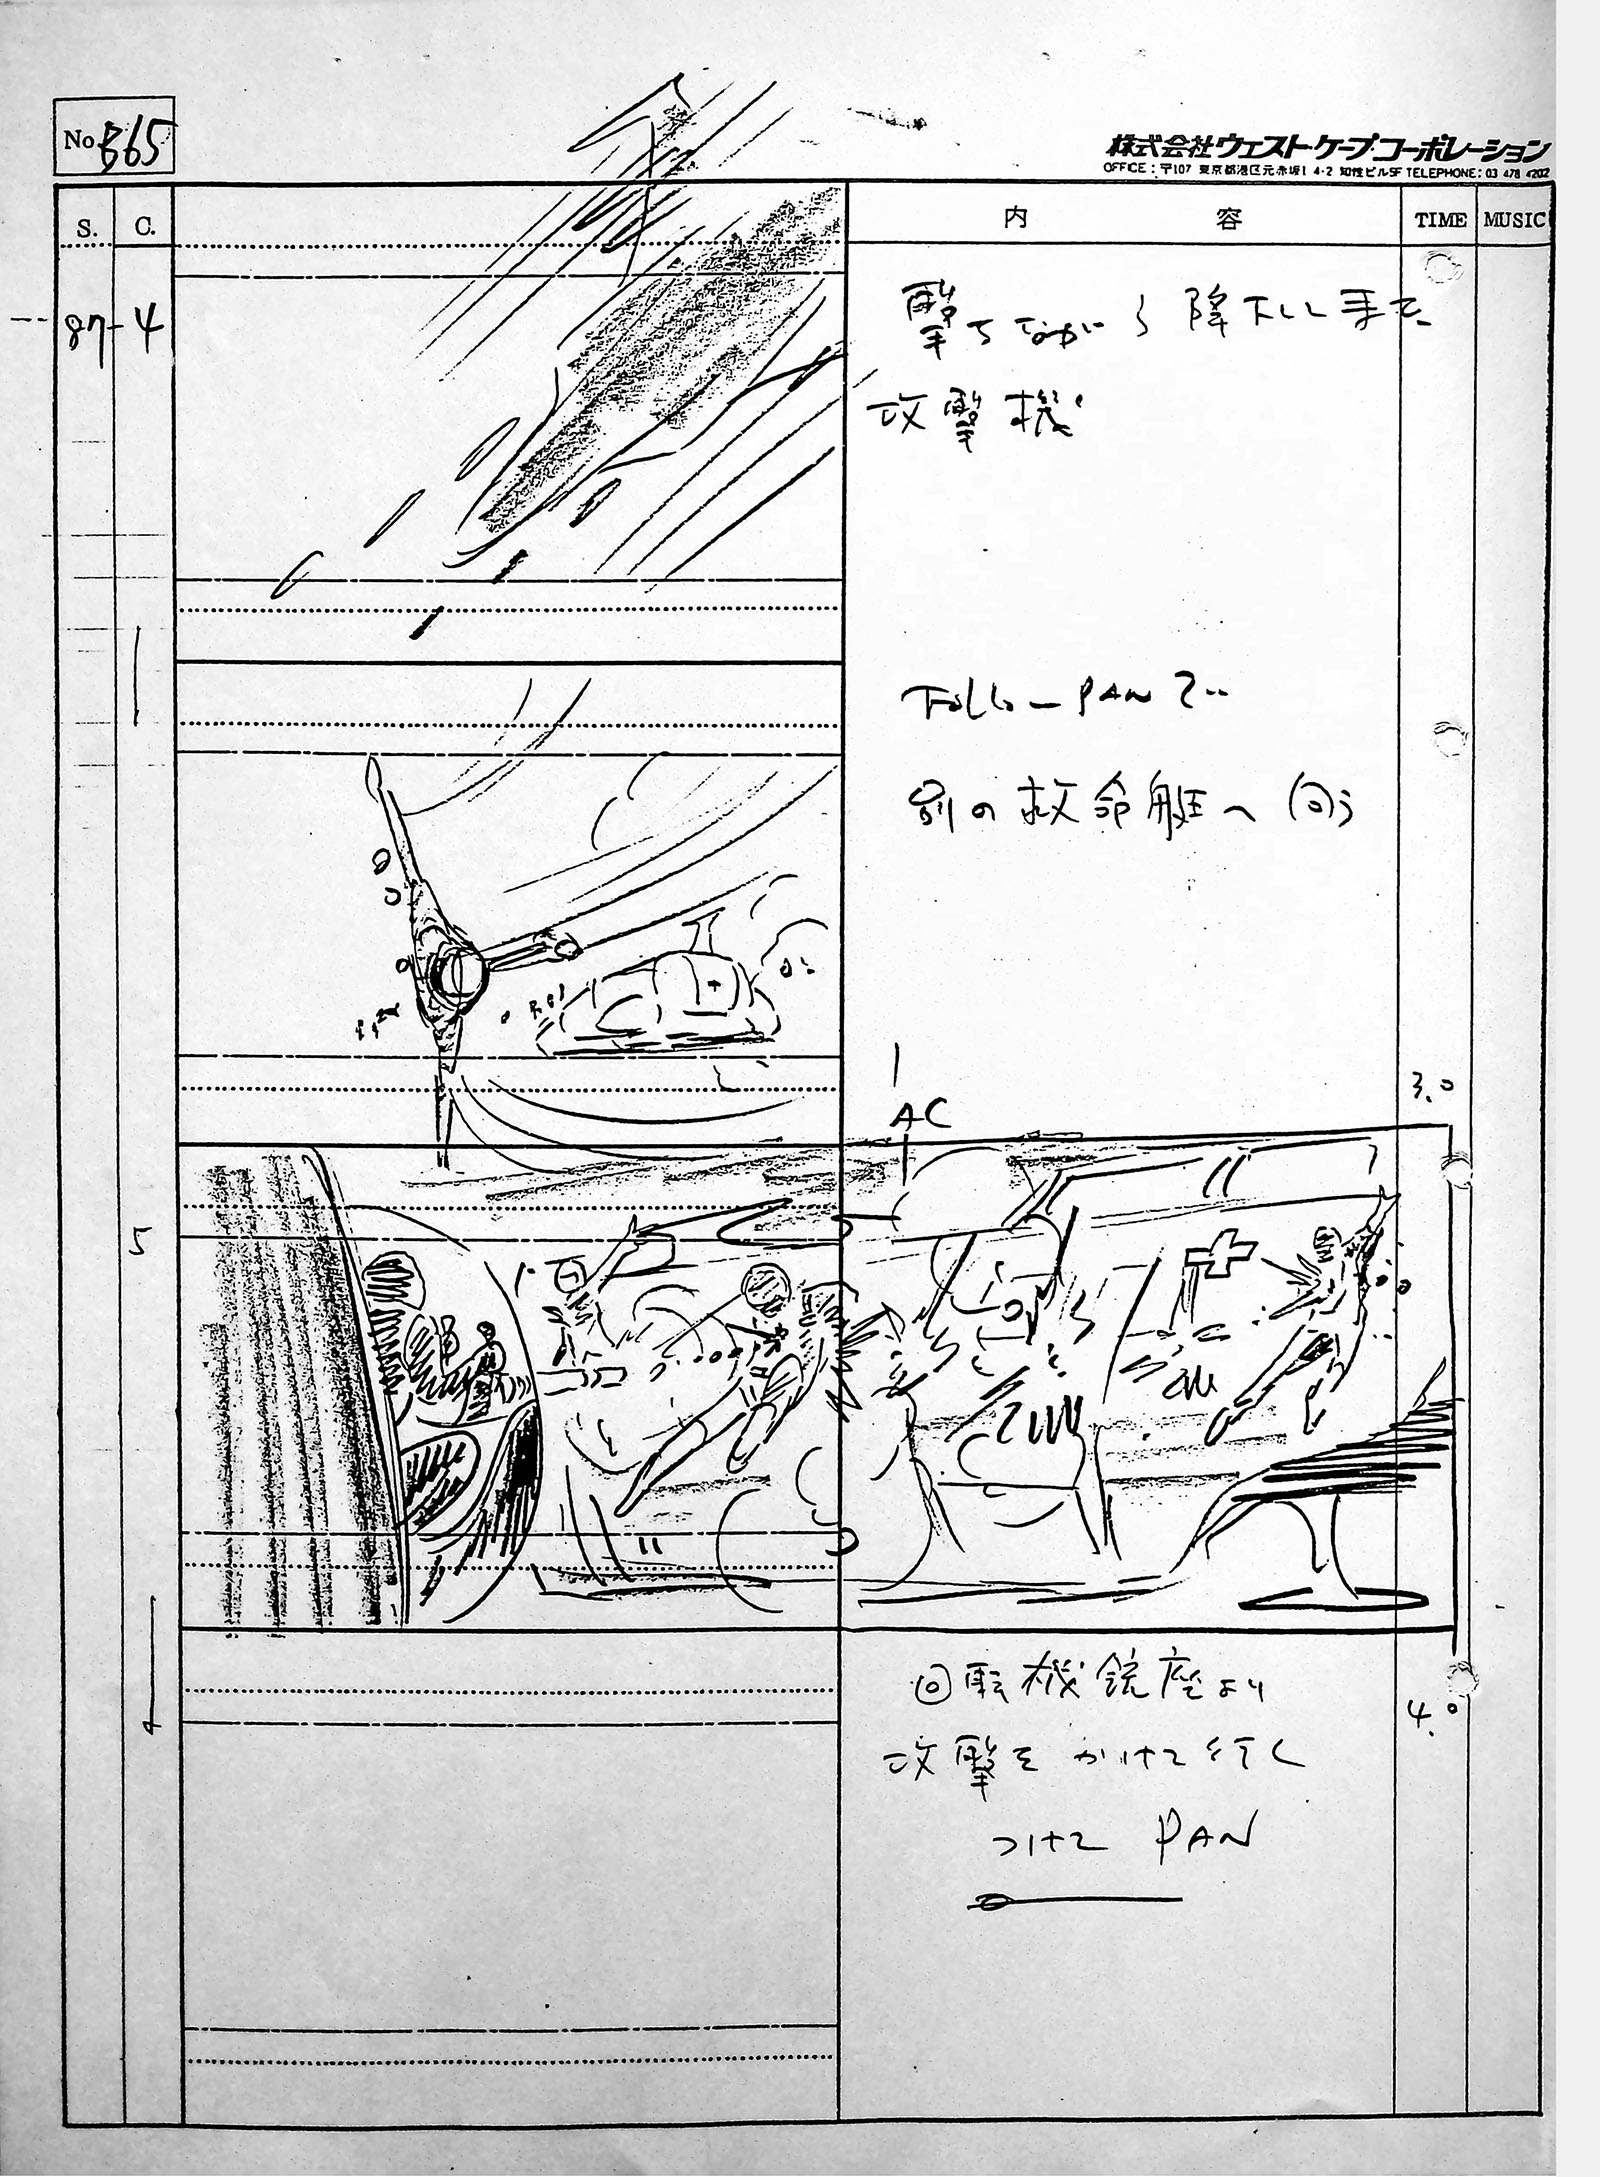 No. B65
株式会社ウエスト・ケープ・コーポレーション
OFFICE : 〒107 東京都港区元赤坂1 4-2 知性ビル5F TELEPHONE: 03 478 4202
S. C. 内容 TIME MUSIC
87-4
撃ちながら降下し
攻撃機
Follow PANで‥
別の救命艇へ向う
3.0
AC
5
回転機銃座より
4.0
攻撃をかけて行く
つけて PAN